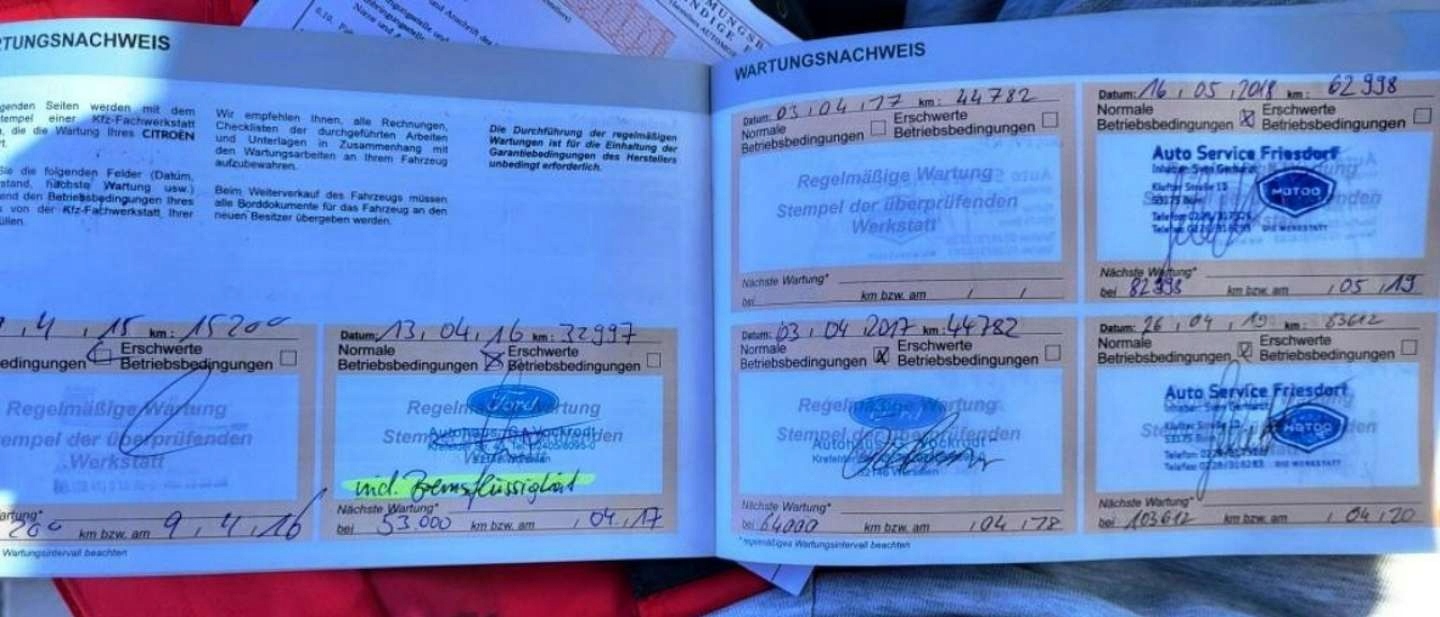 MUNGSB
NDIGE F
6.10.
TUNGSNACHWEIS
genden Seiten werden mit dem
tempel einer Kfz-Fachwerkstatt
, die die Wartung Ihres CITROËN
Sie die folgenden Felder (Datum,
stand, nächste Wartung usw.)
end den Betriebsbedingungen Ihres
von der Kfz-Fachwerkstatt Ihrer
üllen.
Wir empfehlen Ihnen, alle Rechnungen,
Checklisten der durchgeführten Arbeiten
und Unterlagen in Zusammenhang mit
den Wartungsarbeiten an Ihrem Fahrzeug
aufzubewahren.
Beim Weiterverkauf des Fahrzeugs müssen
alle Borddokumente für das Fahrzeug an den
neuen Besitzer übergeben werden.
Die Durchführung der regelmäßigen
Wartungen ist für die Einhaltung der
Garantiebedingungen des Herstellers
unbedingt erforderlich.
4 , 15 km: 15200
Erschwerte
edingungen Betriebsbedingungen
Regelmäßige Wartung
empel der überprüfenden
Werkstatt
artung*
200 km bzw. am 9, 4, 16
Wartungsintervall beachten
Datum: 13, 04, 16 km: 32997
Normale Erschwerte
Betriebsbedingungen Betriebsbedingungen
Ford
Regelm Wartung
Stem den
Autohaus
incl. Bremsflüssigkeit
Nächste Wartung*
bei 53.000 km bzw. am , 04, 17
WARTUNGSNACHWEIS
Datum: 03, 04, 17 km: 44782
Normale Erschwerte
Betriebsbedingungen Betriebsbedingungen
Regelmäßige Wartung
Stempel der überprüfenden
Werkstatt
Nächste Wartung*
bei km bzw. am / /
Datum: 16, 05, 2018 km: 62998
Normale Erschwerte
Betriebsbedingungen Betriebsbedingungen
Auto Service Friesdorf
Inhaber: Sven Gerhardt
MOTOO
DIE WERKSTATT
Nächste Wartung*
bei 82998 km bzw. am , 05, 19
Datum: 03, 04 2017 km: 44782
Normale Erschwerte
Betriebsbedingungen Betriebsbedingungen
Wartung
Stempel
Autohaus
Nächste Wartung*
bei 64000 km bzw. am , 04, 18
*regelmäßiges Wartungsintervall beachten
Datum: 26, 04, 19 km: 83612
Normale Erschwerte
Betriebsbedingungen Betriebsbedingungen
Auto Service Friesdorf
Inhaber: Sven Gerhardt
MOTOO
DIE WERKSTATT
Nächste Wartung*
bei 103612 km bzw. am , 04, 20